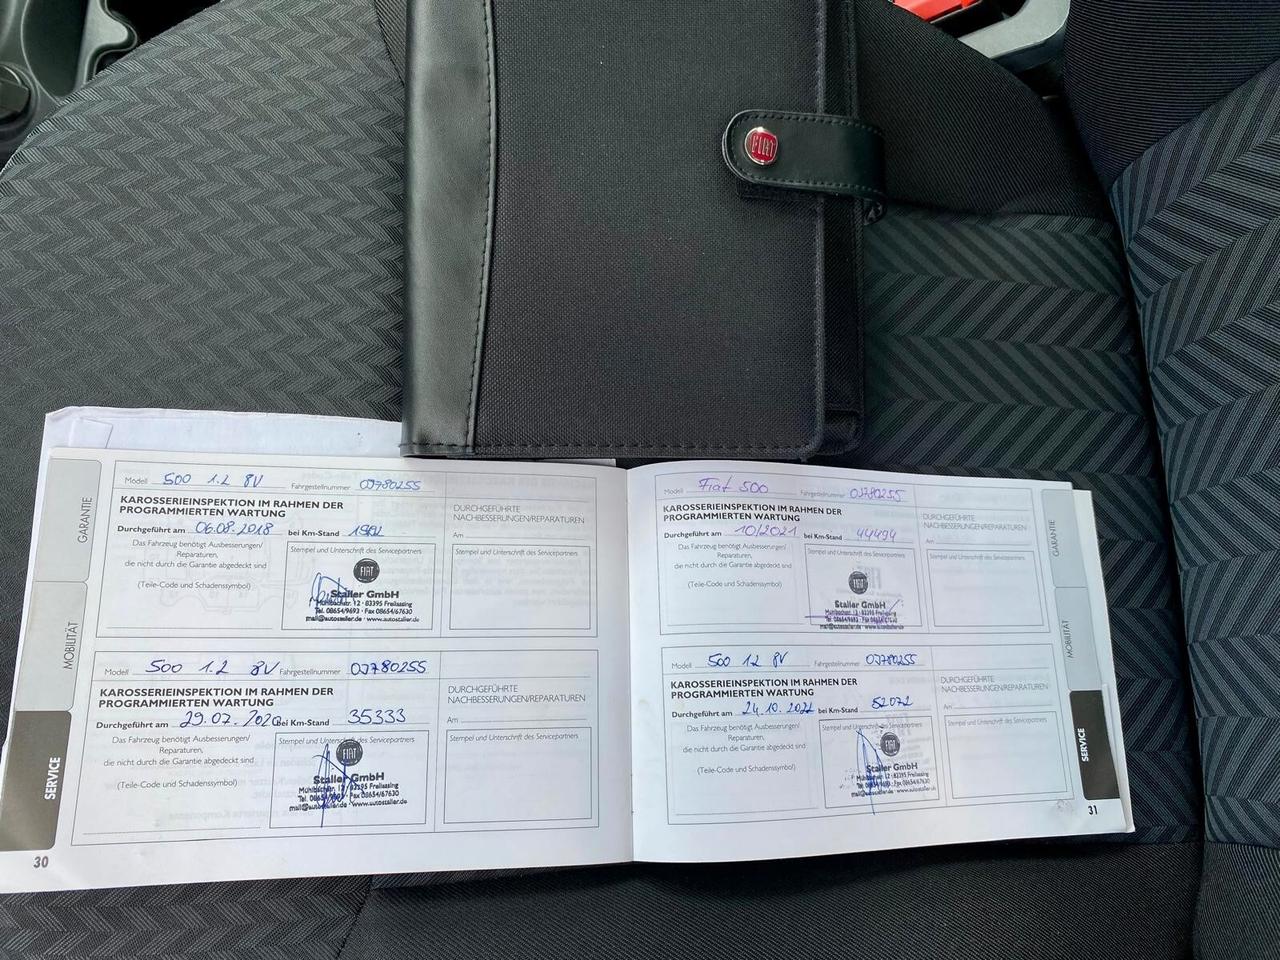 FIAT
Modell 500 1.2 8V Fahrgestellnummer 0J780255
KAROSSERIEINSPEKTION IM RAHMEN DER
PROGRAMMIERTEN WARTUNG
Durchgeführt am 06.08.2018 bei Km-Stand
Das Fahrzeug benötigt Ausbesserungen/
Reparaturen,
die nicht durch die Garantie abgedeckt sind
(Teile-Code und Schadenssymbol)
Stempel und Unterschrift des Servicepartners
FIAT
Staller GmbH
Mühlbachstr. 12 · 83395 Freilassing
Tel. 08654/9693 · Fax 08654/67630
mail@autostaller.de · www.autostaller.de
DURCHGEFÜHRTE
NACHBESSERUNGEN/REPARATUREN
Am
Stempel und Unterschrift des Servicepartners
Modell 500 1.2 8V Fahrgestellnummer 0J780255
KAROSSERIEINSPEKTION IM RAHMEN DER
PROGRAMMIERTEN WARTUNG
Durchgeführt am 29.07.2020 bei Km-Stand 35333
Das Fahrzeug benötigt Ausbesserungen/
Reparaturen,
die nicht durch die Garantie abgedeckt sind
(Teile-Code und Schadenssymbol)
Stempel und Unterschrift des Servicepartners
FIAT
Staller GmbH
Mühlbachstr. 12 · 83395 Freilassing
Tel. 08654/9693 · Fax 08654/67630
mail@autostaller.de · www.autostaller.de
DURCHGEFÜHRTE
NACHBESSERUNGEN/REPARATUREN
Am
Stempel und Unterschrift des Servicepartners
GARANTIE
MOBILITÄT
SERVICE
30
Modell Fiat 500 Fahrgestellnummer 0J780255
KAROSSERIEINSPEKTION IM RAHMEN DER
PROGRAMMIERTEN WARTUNG
Durchgeführt am 10/2021 bei Km-Stand 44494
Das Fahrzeug benötigt Ausbesserungen/
Reparaturen,
die nicht durch die Garantie abgedeckt sind
(Teile-Code und Schadenssymbol)
Stempel und Unterschrift des Servicepartners
FIAT
Staller GmbH
Mühlbachstr. 12 · 83395 Freilassing
Tel. 08654/9693 · Fax 08654/67630
mail@autostaller.de · www.autostaller.de
DURCHGEFÜHRTE
NACHBESSERUNGEN/REPARATUREN
Am
Stempel und Unterschrift des Servicepartners
Modell 500 1.2 8V Fahrgestellnummer 0J780255
KAROSSERIEINSPEKTION IM RAHMEN DER
PROGRAMMIERTEN WARTUNG
Durchgeführt am 24.10. bei Km-Stand 52072
Das Fahrzeug benötigt Ausbesserungen/
Reparaturen,
die nicht durch die Garantie abgedeckt sind
(Teile-Code und Schadenssymbol)
Stempel und Unterschrift des Servicepartners
FIAT
Staller GmbH
Mühlbachstr. 12 · 83395 Freilassing
Tel. 08654/9693 · Fax 08654/67630
mail@autostaller.de · www.autostaller.de
DURCHGEFÜHRTE
NACHBESSERUNGEN/REPARATUREN
Am
Stempel und Unterschrift des Servicepartners
GARANTIE
MOBILITÄT
SERVICE
31